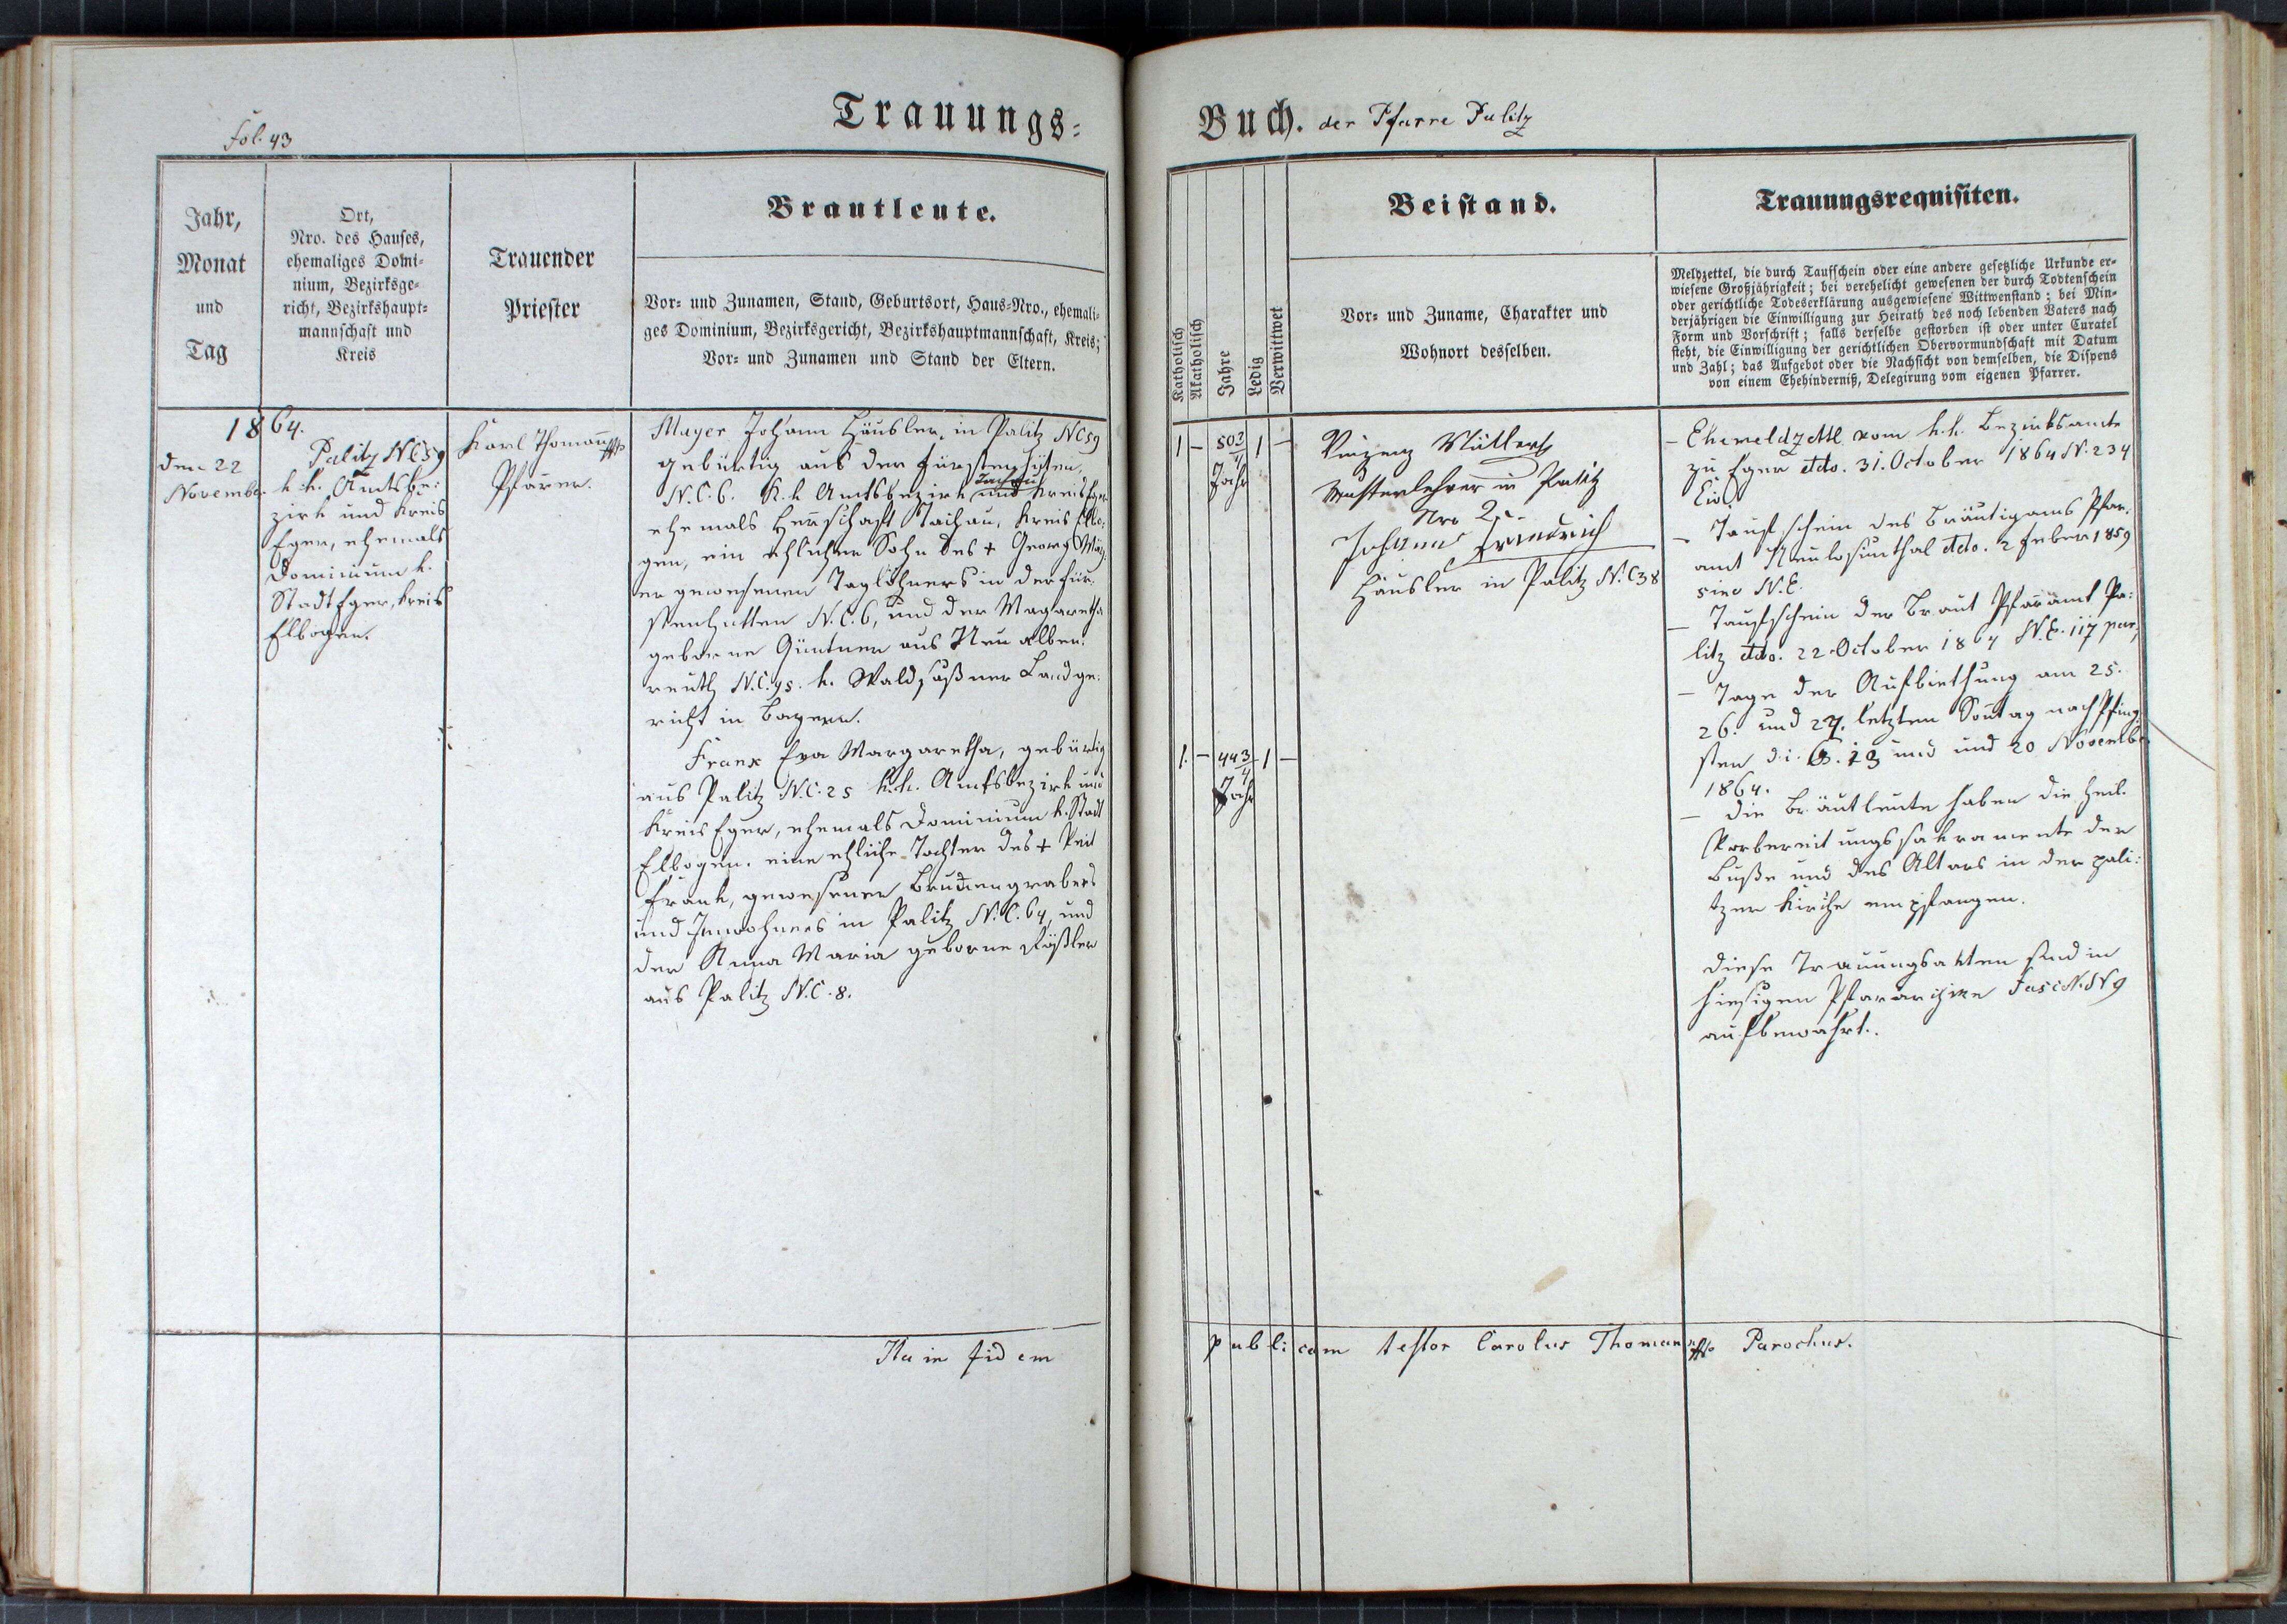 Trauungs-
fol. 43
Jahr,
Monat
und
Tag
Ort,
Nro. des Hauses,
ehemaliges Domi-
nium, Bezirksge-
richt, Bezirkshaupt-
mannschaft und
Kreis
Trauender
Priester
Brautleute.
Vor- und Zunamen, Stand, Geburtsort, Haus-Nro., ehemali-
ges Dominium, Bezirksgericht, Bezirkshauptmannschaft, Kreis;
Vor- und Zunamen und Stand der Eltern.
1864.
den 22
November
Palitz NC 59
k. k. Amtsbe:
zirk und Kreis
Eger, ehemals
Dominium k.
Stadt Eger, Kreis
Elbogen.
Karl Thomann
Pfarrer.
Mayer Johann Häusler, in Palitz NC 59
gebürtig aus der Fürstenhütten,
N.C. 6. K. k Amtsbezirk Tachau und Kreis Eger
ehemals Herrschaft Tachau, Kreis Elbo-
gen, ein ehlicher Sohn des + Georg May-
er gewesenen Taglöhners in der Für-
stenhutten N.C. 6, und der Magaretha
geborne Güntner aus Neu alben-
reuth N.C. 95. k. Waldsaßner Landge-
richt in Bayern.
Frank Eva Margaretha, gebürtig
aus Palitz N.C. 25 k. k. Amtsbezirk und
Kreis Eger, ehemals Dominium k. Stadt
Elbogen. eine ehliche Tochter des + Veit
Frank, gewesenen Brunengrabers
und Inwohners in Palitz N.C. 64, und
der Anna Maria geborne Rößler
aus Palitz N.C. 8.
Ita in fidem
Buch. der Pfarre Palitz
Katholisch
Akatholisch
Jahre
Ledig
Verwittwet
Beistand.
Vor- und Zuname, Charakter und
Wohnort desselben.
Trauungsrequisiten.
Meldzettel, die durch Taufschein oder eine andere gesetzliche Urkunde er-
wiesene Großjährigkeit; bei verehelicht gewesenen der durch Todtenschein
oder gerichtliche Todeserklärung ausgewiesene Wittwenstand; bei Min-
derjährigen die Einwilligung zur Heirath des noch lebenden Vaters nach
Form und Vorschrift; falls derselbe gestorben ist oder unter Curatel
steht, die Einwilligung der gerichtlichen Obervormundschaft mit Datum
und Zahl; das Aufgebot oder die Nachsicht von demselben, die Dispens
von einem Ehehinderniß, Delegirung vom eigenen Pfarrer.
1 – 50 3/4 1 –
Jahr
1. – 44 3/4 1 –
Jahr
Vinzenz Müller
Musterlehrer in Palitz
Nro 2
Johann Friedrich
Häusler in Palitz N.C 38
– Ehemeldzettl vom k. k. Bezirksamte
zu Eger ddo. 31. October 1864 N. 234
Civ.
– Taufschein des Bräutigams Pfar-
amt Neulosimthal ddo. 2 Feber 1859
sine N. E.
– Taufschein der Braut Pfaramt Pa-
litz ddo. 22 October 1864 N. E. 117 par.
– Tage der Aufbiethung am 25.
26. und 27. letzten Sontag nach Pfing-
sten d. i. 6. 13 und und 20 November
1864.
– die Bräutleute haben die heil.
Vorbereitungssakramente der
Buße und des Altars in der pali-
tzer Kirche empfangen.
Diese Trauungsakten sind in
hiesigen Pfararchive Fasc N. 9
aufbewahrt.
publicam testor Carolus Thomann Parochus.